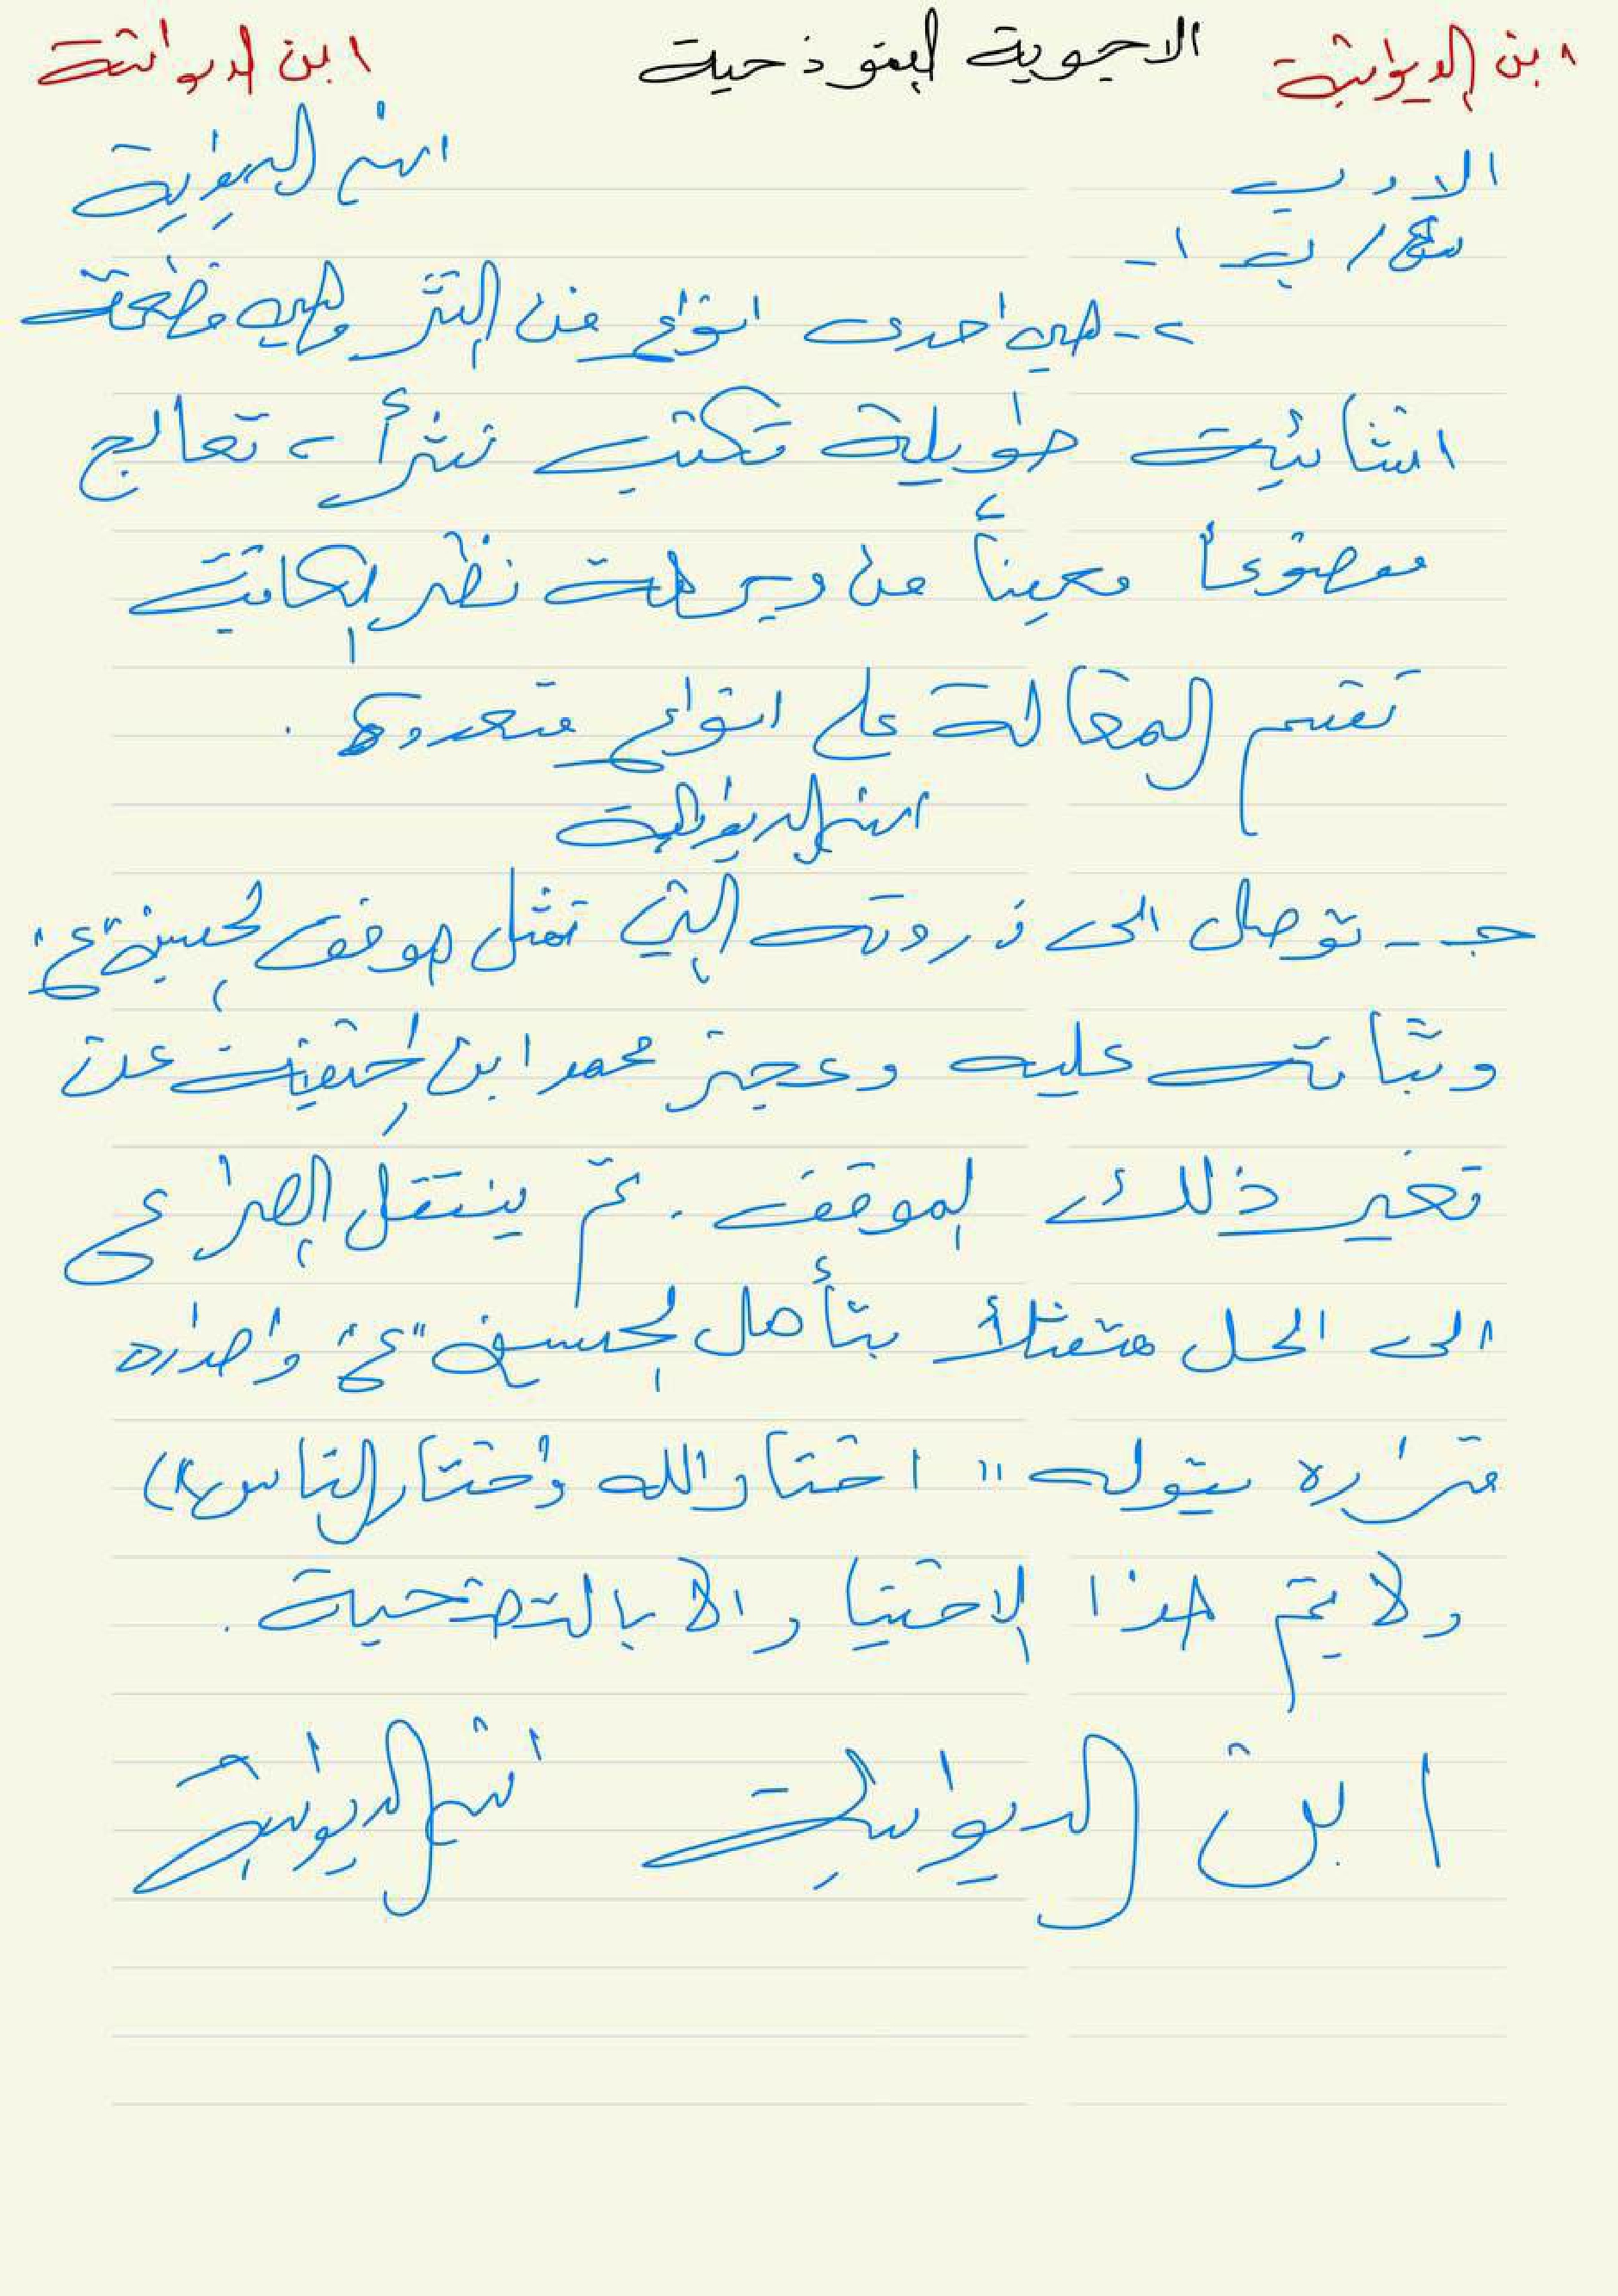 ابن الديوانية الاجوبة النموذجية ابن الديوانية
الادب ابن الديوانية
س٤/ ب ١-
٢- هي احدى انواع فن النثر وهي قطعة
انشائية طويلة تكتب نثرأ، تعالج
موضوعاً معيناً من وجهة نظر الكاتب
تقسم المقالة على انواع متعددة.
ابن الديوانية
جـ - توصل الى ذروته التي تمثل موقف الحسين "ع"
وثباته عليه وعجز محمد ابن الحنفية عن
تغير ذلك الموقف. ثم ينتقل الصراع
الى الحل متمثلاً بتأمل الحسين "ع" واصداره
قراره بقوله "اختار الله واختار الناس"
ولا يتم هذا الاختيار الا بالتضحية.
ابن الديوانية ابن الديوانية